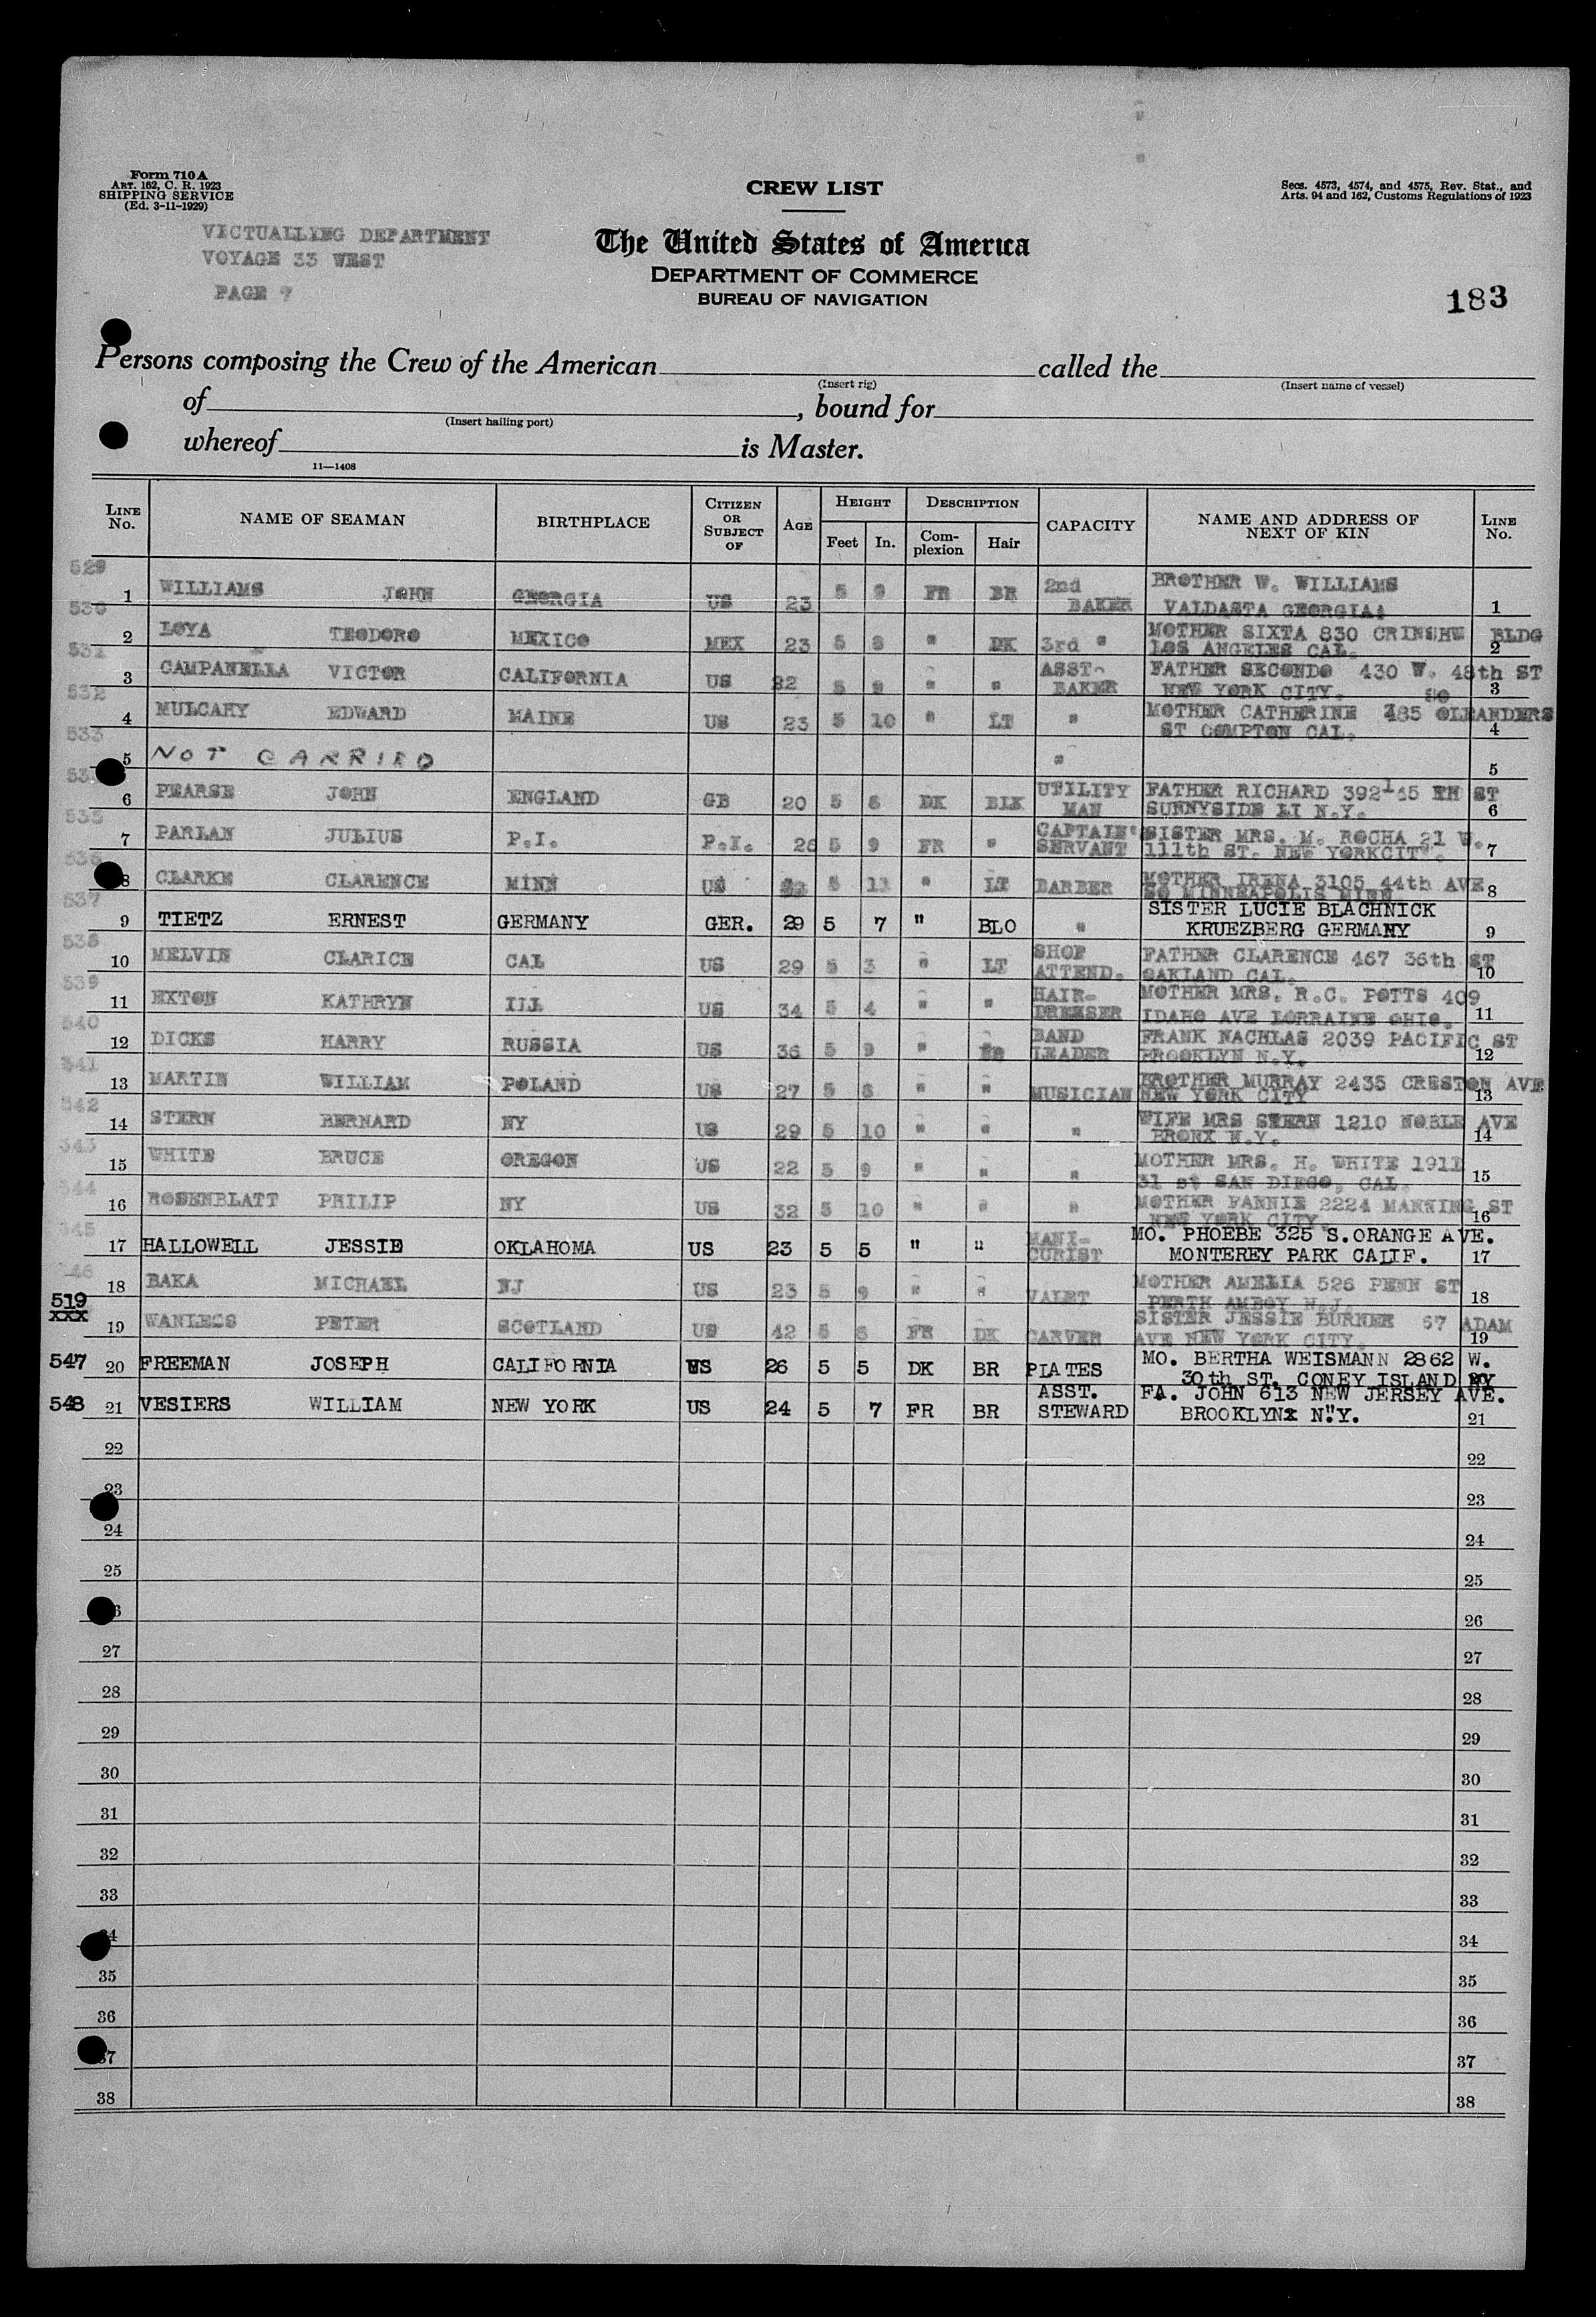 Form 710 A
ART. 162, C. R. 1923
SHIPPING SERVICE
(Ed. 3-11-1929)
CREW LIST
Secs. 4573, 4574, and 4575, Rev. Stat., and
Arts. 94 and 162, Customs Regulations of 1923
VICTUALLING DEPARTMENT
VOYAGE 33 WEST
PAGE 7
The United States of America
DEPARTMENT OF COMMERCE
BUREAU OF NAVIGATION
183
Persons composing the Crew of the American called the
(Insert rig) (Insert name of vessel)
of , bound for
(Insert hailing port)
whereof is Master.
11—1408
LINE No. NAME OF SEAMAN BIRTHPLACE CITIZEN OR SUBJECT OF AGE HEIGHT Feet In. DESCRIPTION Complexion Hair CAPACITY NAME AND ADDRESS OF NEXT OF KIN LINE No.
529 1 WILLIAMS JOHN GEORGIA US 23 5 9 FR BR 2nd BAKER BROTHER W. WILLIAMS VALDASTA GEORGIA 1
530 2 LOYA TEODORO MEXICO MEX 23 5 8 " DK 3rd " MOTHER SIXTA 830 CRINSHW BLDG LOS ANGELES CAL. 2
531 3 CAMPANELLA VICTOR CALIFORNIA US 22 5 9 " " ASST BAKER FATHER SECONDO 430 W. 48th ST NEW YORK CITY. 3
532 4 MULCAHY EDWARD MAINE US 23 5 10 " LT " MOTHER CATHERINE 485 SO OLEANDERS ST COMPTON CAL. 4
533 5 NOT CARRIED " 5
6 PEARSE JOHN ENGLAND GB 20 5 8 DK BLK UTILITY MAN FATHER RICHARD 392145 TH ST SUNNYSIDE LI N.Y. 6
535 7 PARLAN JULIUS P.I. P.I. 26 5 9 FR " CAPTAIN' SERVANT SISTER MRS. M. ROCHA 21 W. 111th ST. NEW YORKCITY. 7
536 8 CLARKE CLARENCE MINN US 5 11 " LT BARBER MOTHER IRENA 3105 44th AVE SO MINNEAPOLIS MINN 8
537 9 TIETZ ERNEST GERMANY GER. 29 5 7 " BLO " SISTER LUCIE BLACHNICK KRUEZBERG GERMANY 9
538 10 MELVIN CLARICE CAL US 29 5 3 " LT SHOP ATTEND. FATHER CLARENCE 467 36th ST OAKLAND CAL. 10
539 11 EXTON KATHRYN ILL US 34 5 4 " " HAIR-DRESSER MOTHER MRS. R.C. POTTS 409 IDAHO AVE LORRAINE OHIO. 11
540 12 DICKS HARRY RUSSIA US 36 5 9 " BAND LEADER FRANK NACHLAS 2039 PACIFIC ST BROOKLYN N.Y. 12
541 13 MARTIN WILLIAM POLAND US 27 5 8 " " MUSICIAN BROTHER MURRAY 2435 CRESTON AVE NEW YORK CITY 13
542 14 STERN BERNARD NY US 29 5 10 " " " WIFE MRS STERN 1210 NOBLE AVE BRONX N.Y. 14
543 15 WHITE BRUCE OREGON US 22 5 9 " " " MOTHER MRS. H. WHITE 1911 31 st SAN DIEGO, CAL. 15
544 16 ROSENBLATT PHILIP NY US 32 5 10 " " " MOTHER FANNIE 2224 MANNING ST NEW YORK CITY. 16
545 17 HALLOWELL JESSIE OKLAHOMA US 23 5 5 " " MANI-CURIST MO. PHOEBE 325 S.ORANGE AVE. MONTEREY PARK CALIF. 17
546 18 BAKA MICHAEL NJ US 23 5 9 " " VALET MOTHER AMELIA 526 PENN ST PERTH AMBOY N.J. 18
519 XXX 19 WANLESS PETER SCOTLAND US 42 5 6 FR DK CARVER SISTER JESSIE BURNEE 67 ADAM AVE NEW YORK CITY. 19
547 20 FREEMAN JOSEPH CALIFORNIA US 26 5 5 DK BR PLATES MO. BERTHA WEISMANN 2862 W. 30th ST. CONEY ISLAND NY 20
548 21 VESIERS WILLIAM NEW YORK US 24 5 7 FR BR ASST. STEWARD FA. JOHN 613 NEW JERSEY AVE. BROOKLYNX N.Y. 21
22 22
23 23
24 24
25 25
26
27 27
28 28
29 29
30 30
31 31
32 32
33 33
34 34
35 35
36 36
37 37
38 38